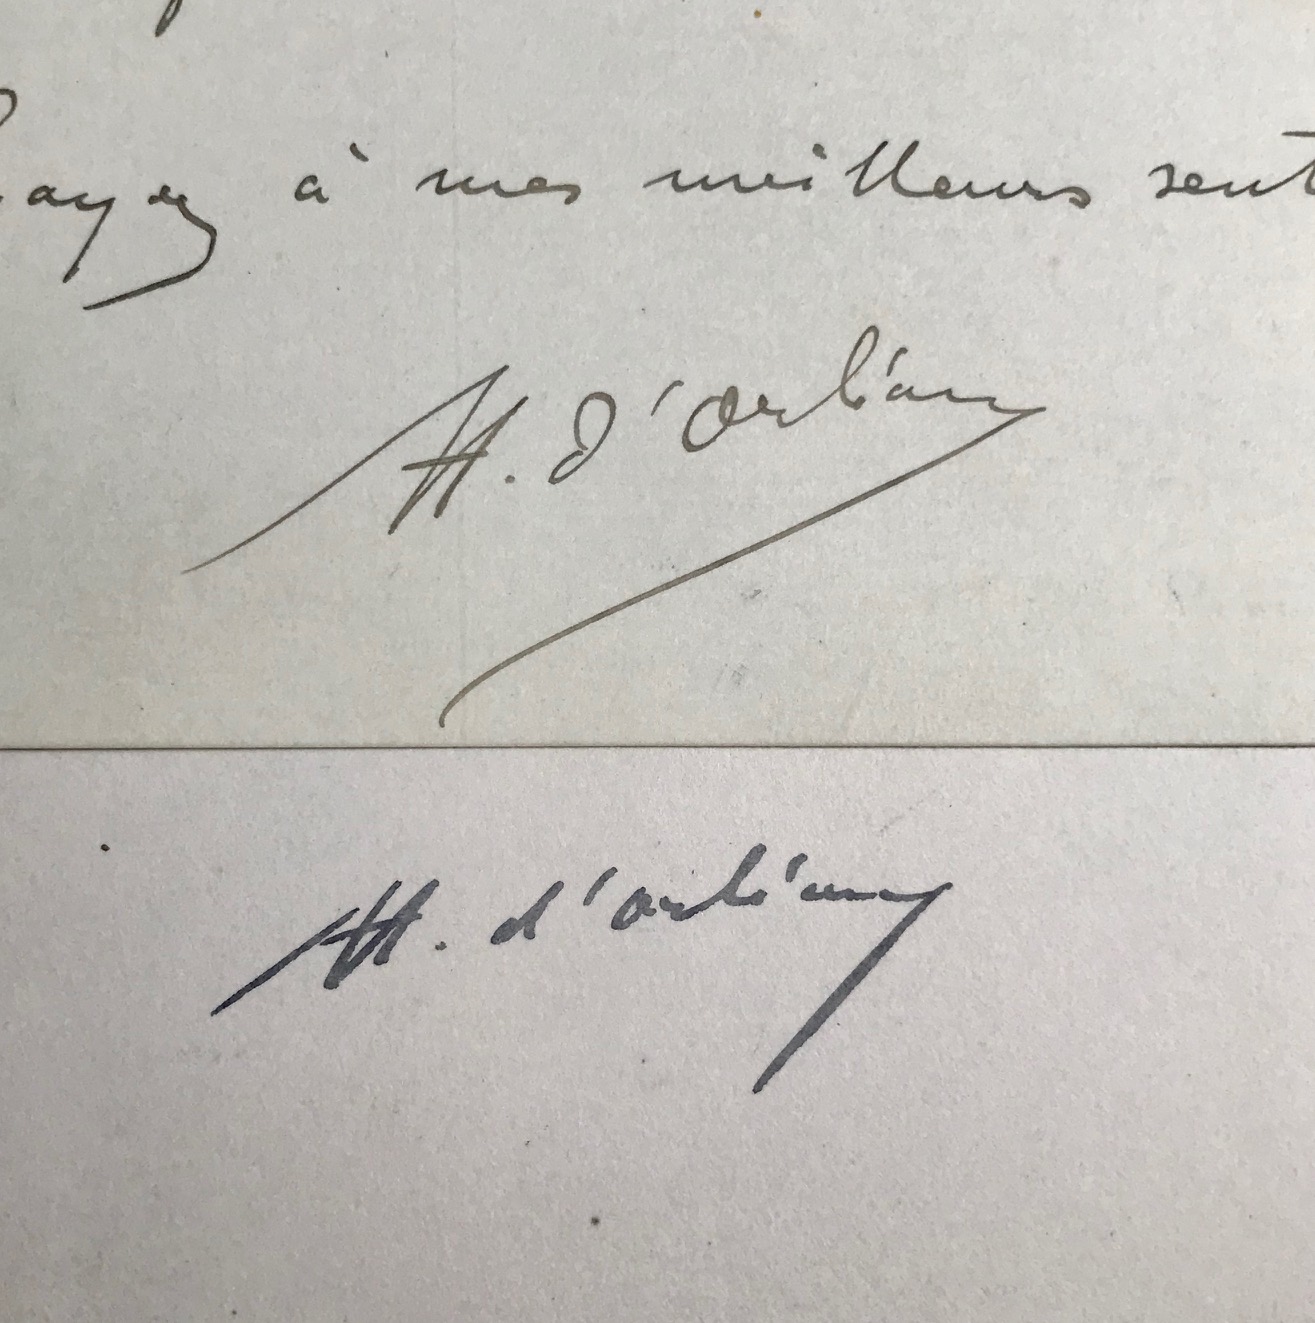 Croyez à mes meilleurs sent
H. d'Orléans
H. d'orléans